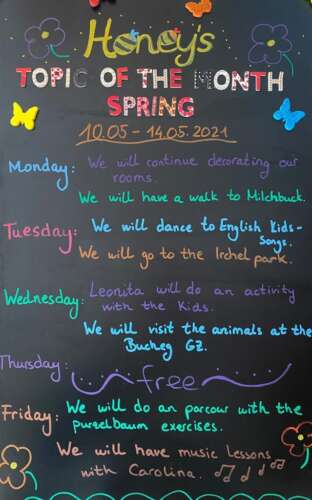 Honey's
TOPIC OF THE MONTH
SPRING
10.05 - 14.05.2021
Monday: We will continue decorating our
rooms.
We will have a walk to Milchbuck.
Tuesday: We will dance to English Kids-
Songs.
We will go to the Irchel park.
Wednesday: Leonita will do an activity
with the Kids.
We will visit the animals at the
Bucheg GZ.
Thursday: free
Friday: We will do an parcour with the
purzelbaum exercises.
We will have music Lessons
with Carolina.